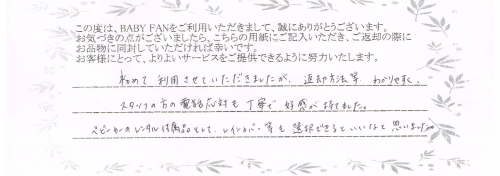 この度は、BABY FANをご利用いただきまして、誠にありがとうございます。
お気づきの点がございましたら、こちらの用紙にご記入いただき、ご返却の際に
お品物に同封していただければ幸いです。
お客様にとって、よりよいサービスをご提供できるように努力いたします。
初めて利用させていただきましたが、返却方法等 わかりやすく、
スタッフの方の電話応対も丁寧で好感が持てました。
ベビーカーのレンタルは備品として、レインカバー等も選択できるといいなと思いました